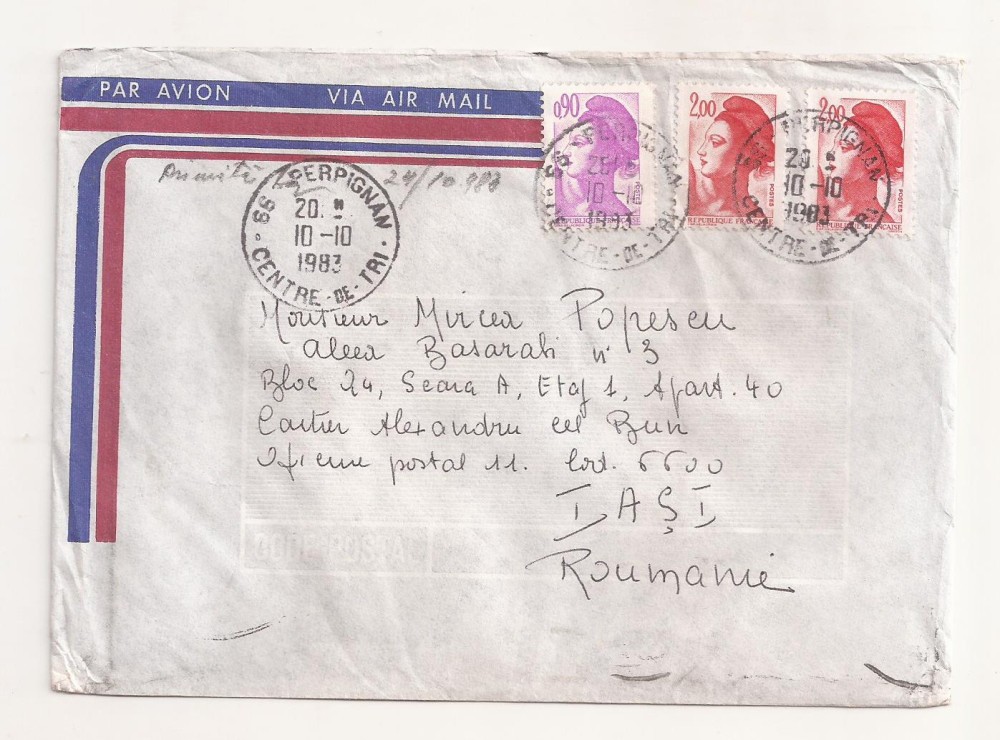 PAR AVION VIA AIR MAIL
0,90 2,00 2,00
24/10.983
66 PERPIGNAN
20
10-10
1983
CENTRE-DE-TRI
66 PERPIGNAN
10-
1983
CENTRE-DE-TRI
66 PERPIGNAN
20
10-10
1983
CENTRE-DE-TRI
POSTES POSTES
REPUBLIQUE FRANÇAISE REPUBLIQUE FRANÇAISE REPUBLIQUE FRANÇAISE
Monsieur Mircea Popescu
Aleea Basarabi n° 3
Bloc 24, Scara A, Etaj 1, Apart. 40
Cartier Alexandru cel Bun
postal 11. Cod. 6600
IAŞI
Roumanie